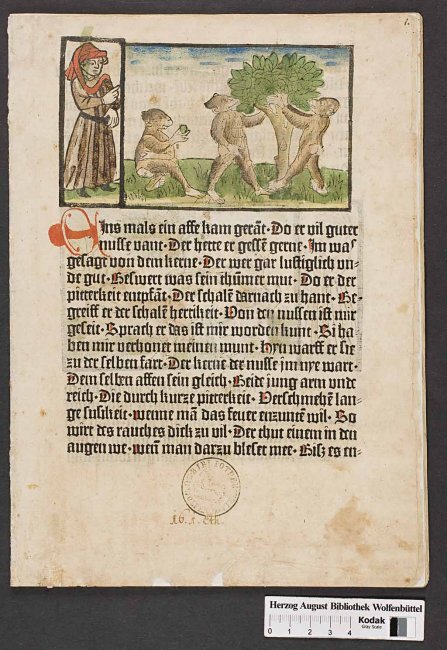 1.
Ins mals ein affe kam gerãt· Do er vil guter
nusse vant· Der hette er gessẽ gerne· Im was
gesagt von dem kerne· Der wer gar lustiglich vn-
de gut· Beswert was sein thũmer mut· Do er der
pitterkeit empfãt· Der schalẽ darnach zu hant· Be-
greiff er der schalẽ herrikeit· Von den nussen ist mir
geseit· Sprach er das ist mir worden kunt· Si ha-
ben mir verhonet meinen munt· Hyn warff er sie
zu der selben fart· Der kerne der nusse im nye wart·
Dem selben affen sein gleich· Beide jung arm vnde
reich· Die durch kurze pitterkeit· Verschmehẽ lan-
ge sussikeit· wenne mã das feuer enzuntẽ wil· So
wirt des rauches dick zu vil· Der thut einem in den
augen we· weñ man darzu bleset mee· Bisz es en-
16. 1. Eth.
Herzog August Bibliothek Wolfenbüttel
0 1 2 3 4
Kodak
Gray Scale